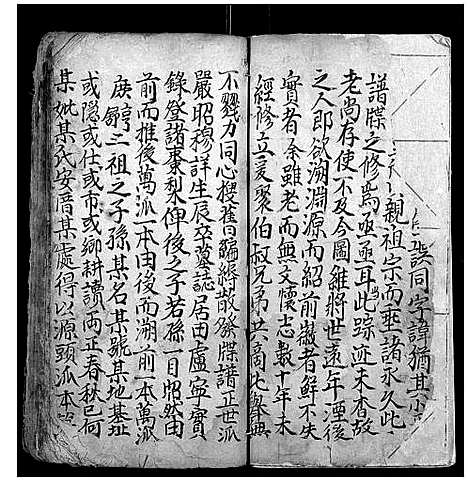 誤同字諱猶其小
親祖宗而垂諸永久此
譜牒之修焉亟亟耳此踪迹未杳故
老尚存使不及今圖維將世遠年湮後
之人即欲溯淵源而紹前徽者鮮不失
實者余雖老而無文懷志數十年未
經修立爰聚伯叔兄弟共商此舉興
不戮力同心搜舊編緝散殘牒譜正世派
嚴昭穆詳生辰卒塟誌居田廬寧實
錄登諸棗梨俾後之子若孫一目昭然由
前而推後萬派一本由後而溯前一本萬派
二祖之子孫某名某號某地基址
或隐或仕或市或鄉耕讀兩正春秋已何
某妣某氏安厝某處得以源頭派本